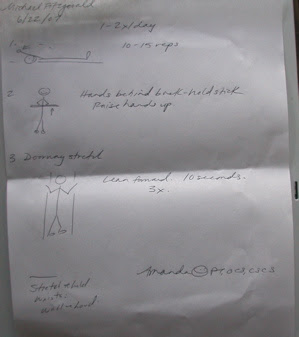 Michael Fitzgerald
6/22/07
1-2x/day
1.
10-15 reps
2.
Hands behind back-hold stick
Raise hands up
3 Doorway stretch
Lean forward. 10 seconds.
3x.
Amanda
Stretch + hold
points: